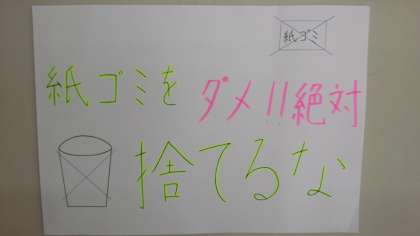 紙ゴミ
紙ゴミを
ダメ!!絶対
捨てるな